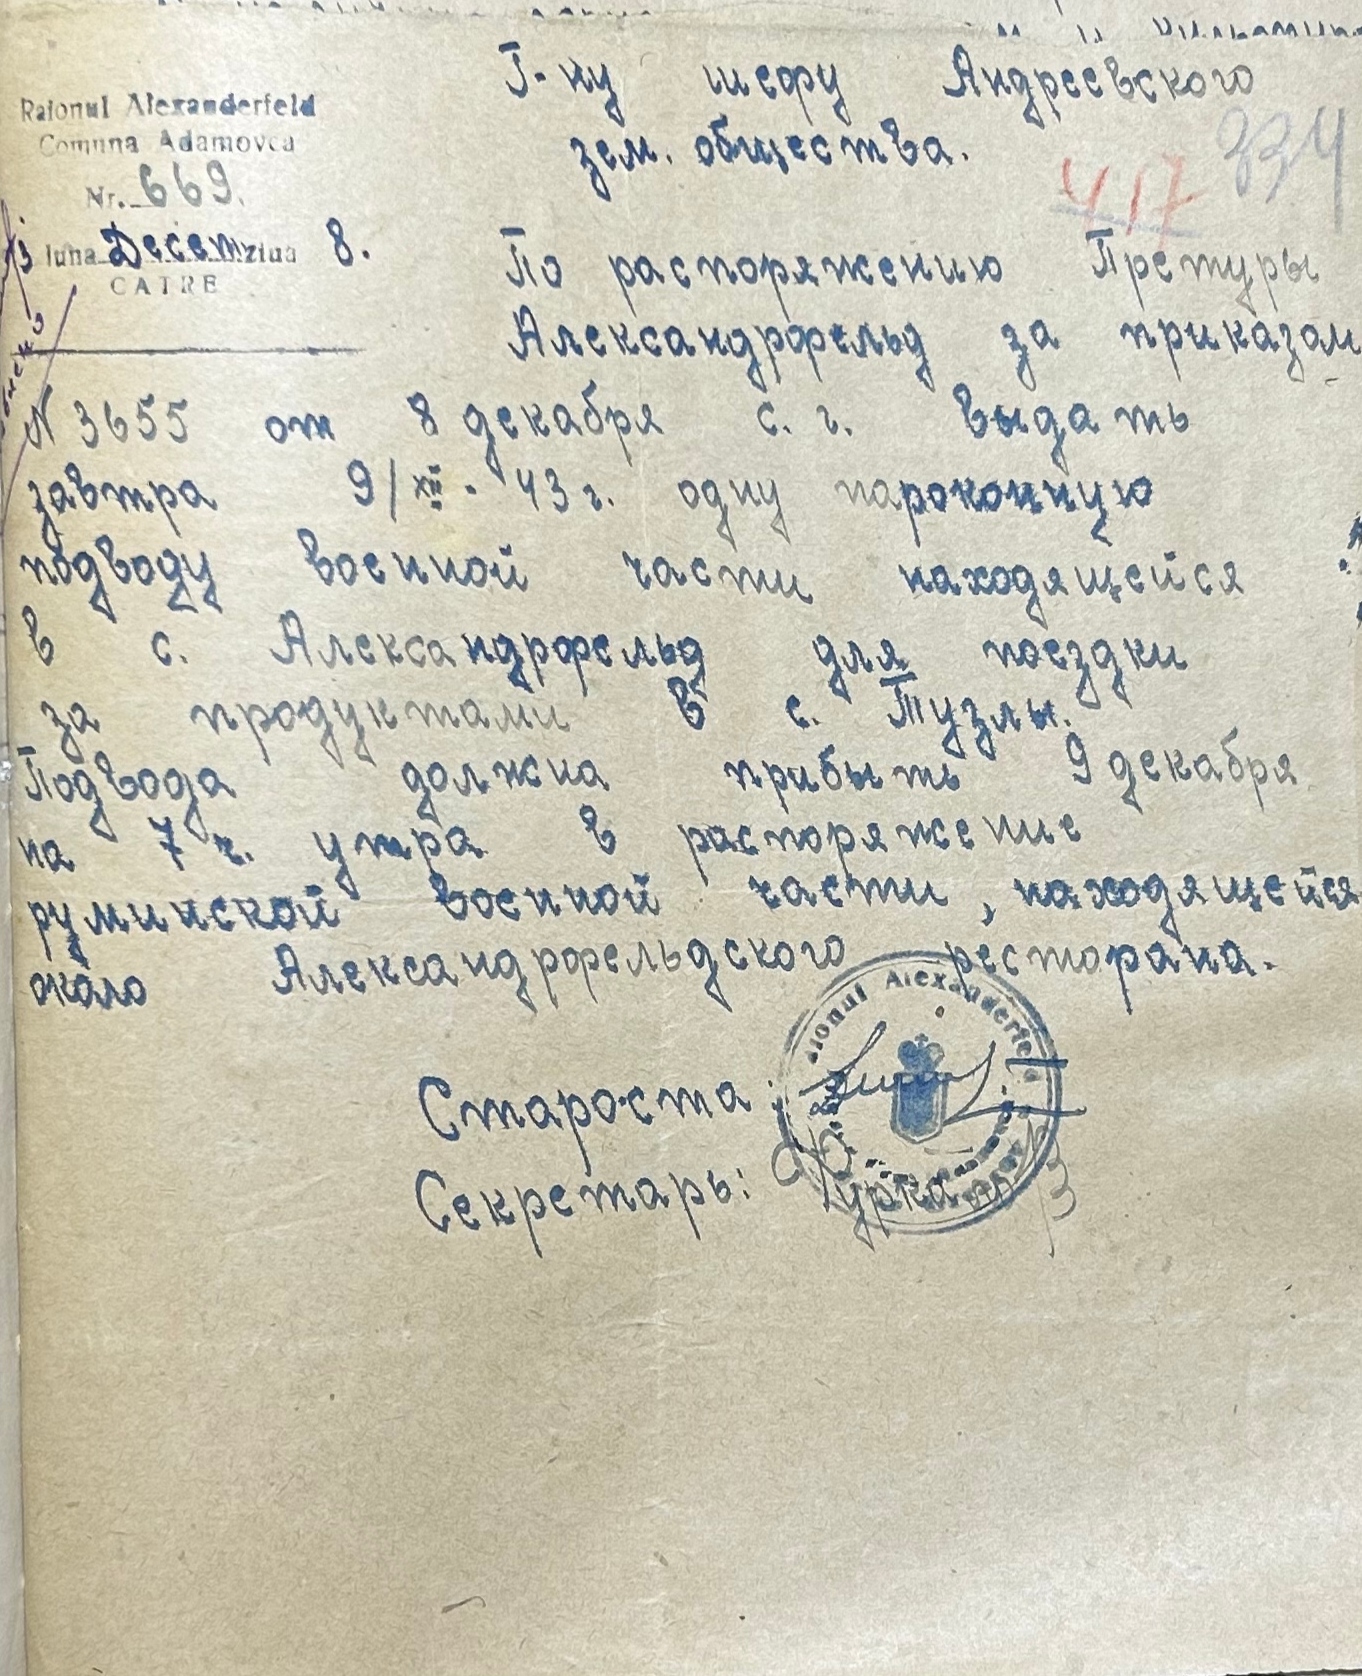 Г-ну шефу Андреевского
зем. общества.
Raionul Alexanderfeld
Comuna Adamovca
Nr. 669.
luna Decem ziua 8.
CATRE
417
334
По распоряжению Претуры
Александрфельд за приказом
N 3655 от 8 декабря с. г. выдать
завтра 9/XII - 43 г. одну пароконную
подводу военной части находящейся
в с. Александрфельд для поездки
за продуктами в с. Тузлы.
Подвода должна прибыть 9 декабря
на 7 ч. утра в распоряжение
румынской военной части, находящейся
около Александрфельдского ресторана.
Староста:
Секретарь:
Raionul Alexanderfeld